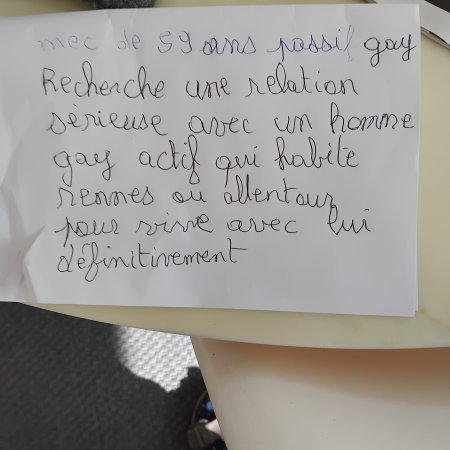 mec de 59 ans passif gay
Recherche une relation
sérieuse avec un homme
gay actif qui habite
rennes ou allentour
pour vivre avec lui
définitivement